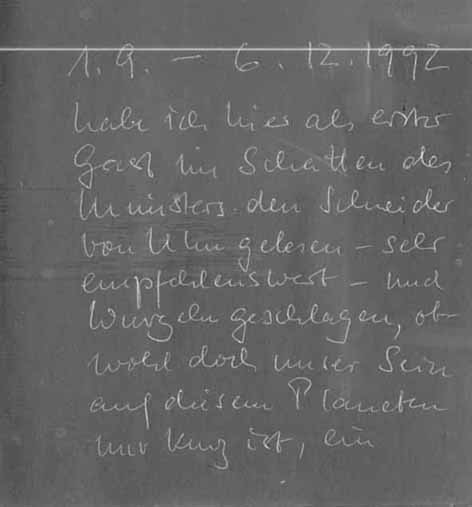 1.9. – 6.12.1992
habe ich hier als erster
Gast im Schatten des
Münsters den Schneider
von Ulm gelesen – sehr
empfehlenswert – und
Wurzeln geschlagen, ob-
wohl doch unser Sein
auf diesem Planeten
nur kurz ist, ein